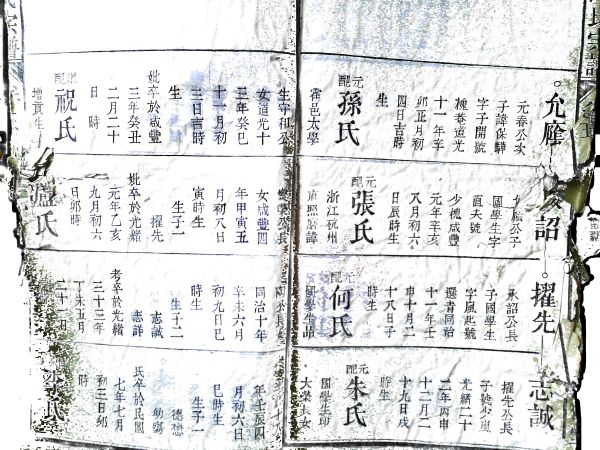 氏宗譜
允塍
元春公次
子諱保驊
字子開號
槐菴道光
十一年辛
卯正月初
四日吉時
生
元配孫氏
霍邑太學
生守和公
女道光十
三年癸巳
十一月初
三日吉時
生
妣卒於咸豐
三年癸丑
二月二十
日時
繼配祝氏
增貢生
承詔
國學生字
直夫號
少槐咸豐
元年辛亥
八月初六
日辰時生
元配張氏
浙江杭州
女咸豐四
年甲寅五
月初八日
寅時生
生子一
擢先
妣卒於光緒
元年乙亥
九月初六
日卯時
盧氏
擢先
承詔公長
子國學生
字風起號
選青同治
十一年壬
申十月二
十八日子
時生
元配何氏
國學生
同治十年
辛未六月
初九日巳
時生
生子二
志誠
志詳
考卒於光緒
三十三年
丁未五月
二十二日
志誠
擢先公長
子號少嵐
光緒二十
二年丙申
十二月二
十九日戌
時生
元配朱氏
國學生印
大榮長女
年壬辰四
月初六日
巳時生
生子一
德懋
氏卒於民國
七年七月
初三日卯
時